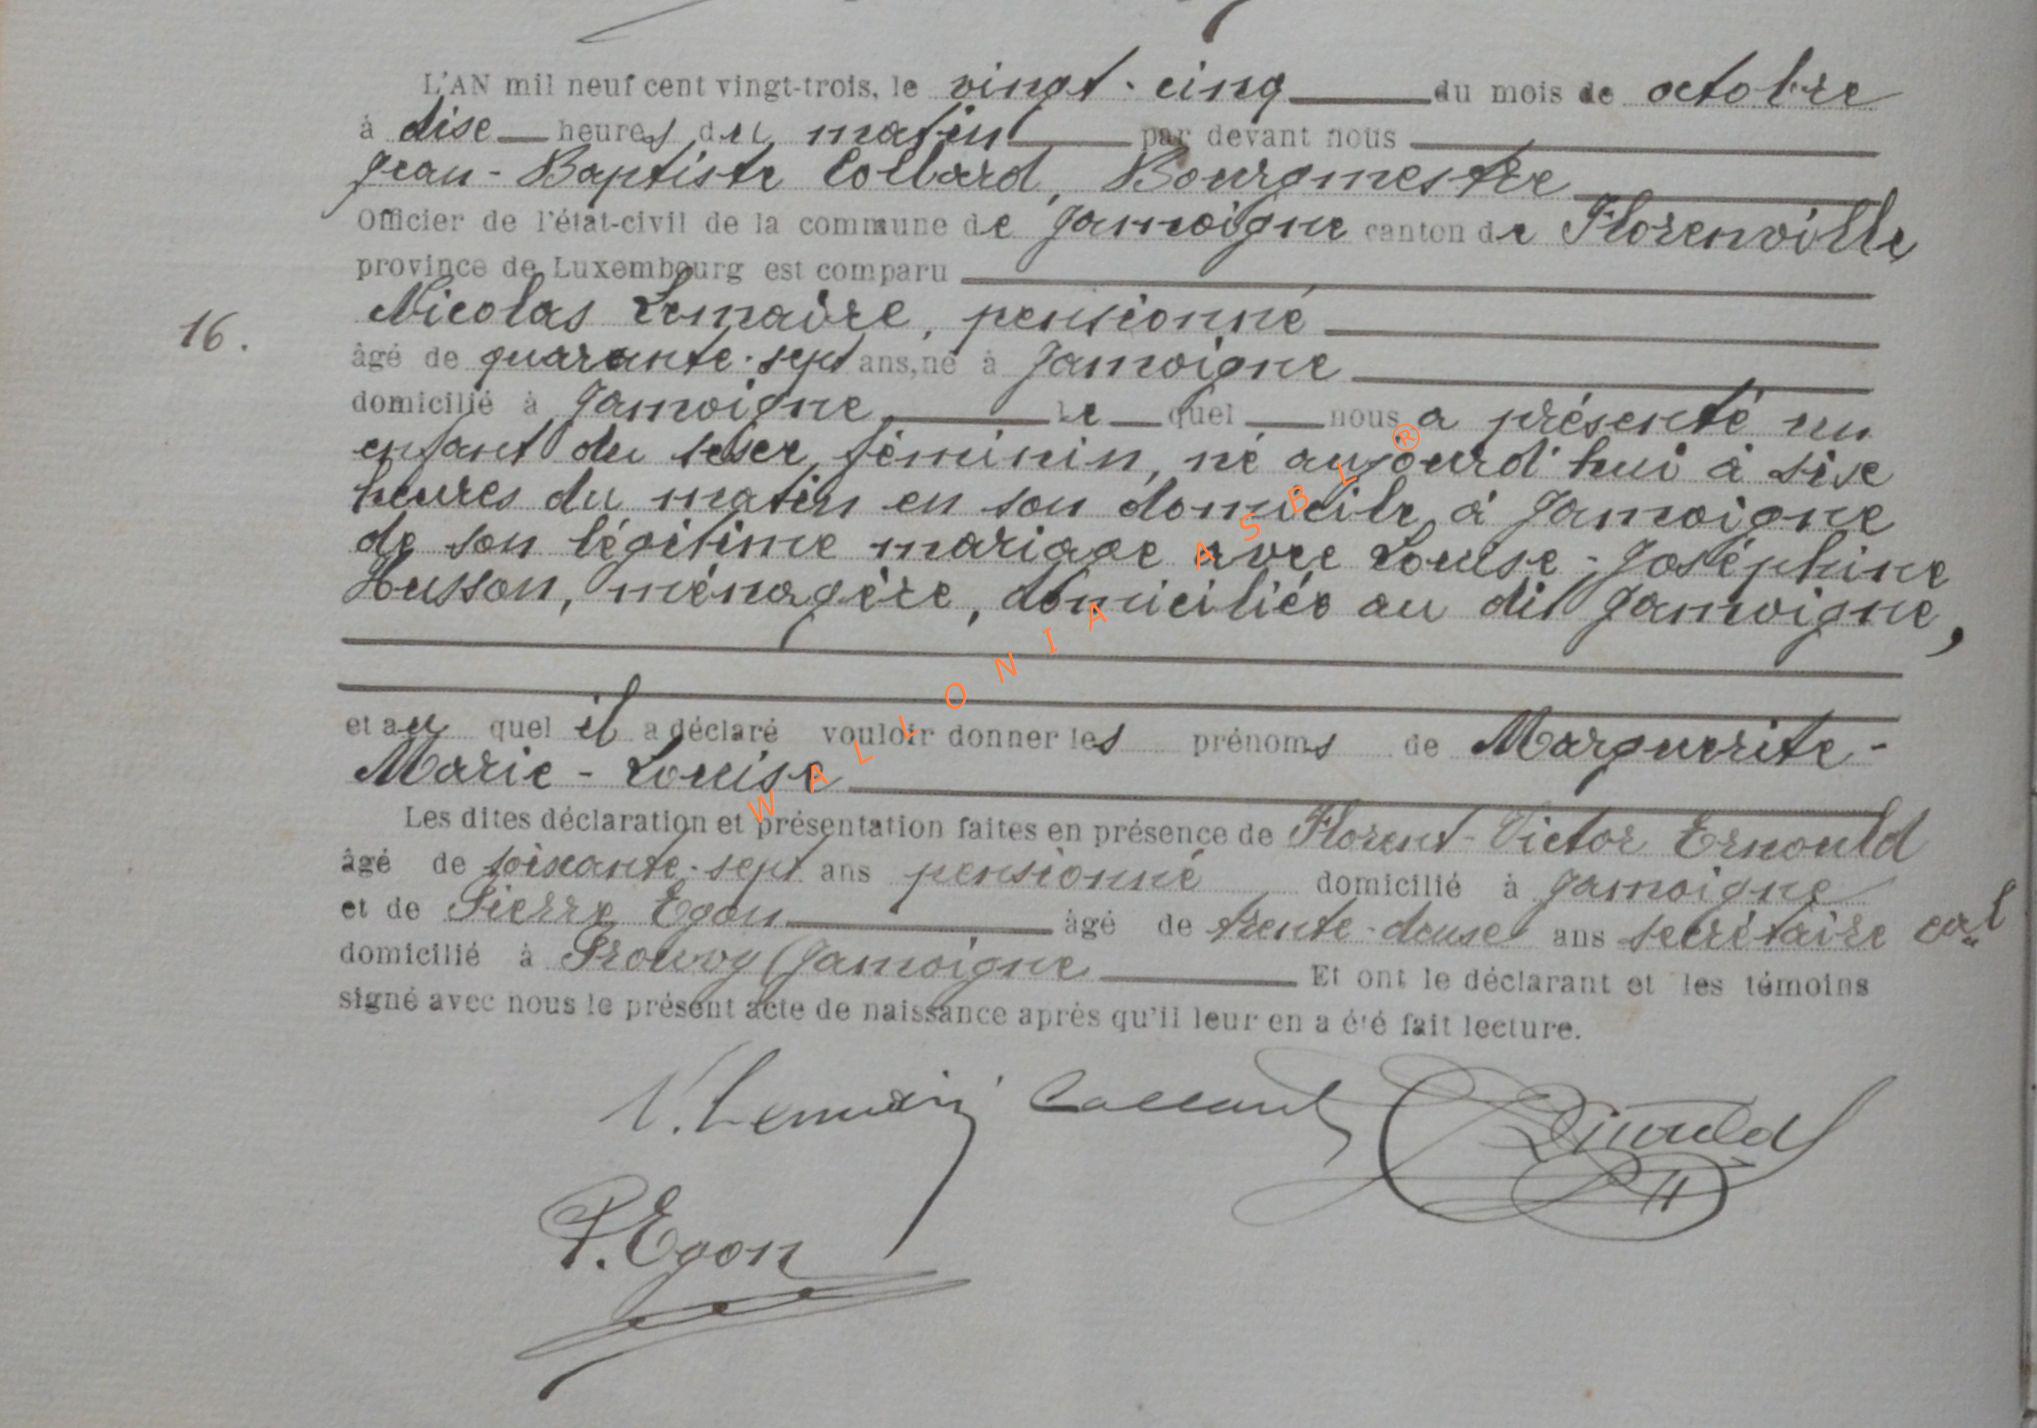 L'AN mil neuf cent vingt-trois, le vingt-cinq du mois de octobre
à dix heures du matin par devant nous
Jean-Baptiste Collard, Bourgmestre
Officier de l'état-civil de la commune de Jamoigne canton de Florenville
province de Luxembourg est comparu
Nicolas Lemaire, pensionné
16.
âgé de quarante-sept ans, né à Jamoigne
domicilié à Jamoigne lequel nous a présenté un
enfant du sexe féminin, né aujourd'hui à six
heures du matin en son domicile à Jamoigne
de son légitime mariage avec Louise-Joséphine
Husson, ménagère, domiciliée au dit Jamoigne,
et au quel il a déclaré vouloir donner les prénoms de Marguerite-
Marie-Louise
Les dites déclaration et présentation faites en présence de Florent-Victor Ernould
âgé de soixante-sept ans pensionné domicilié à Jamoigne
et de Pierre Egon âgé de trente-deux ans secrétaire cal
domicilié à Prouvy (Jamoigne Et ont le déclarant et les témoins
signé avec nous le présent acte de naissance après qu'il leur en a été fait lecture.
N. Lemaire Collard Ernould
P. Egon
WALLONIA ASBL ®